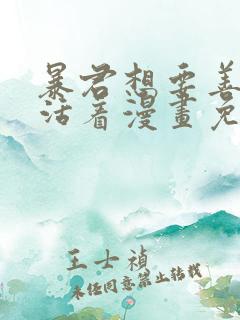 暴君想要善
活着漫畫免
王士禎
未经同意禁止转载